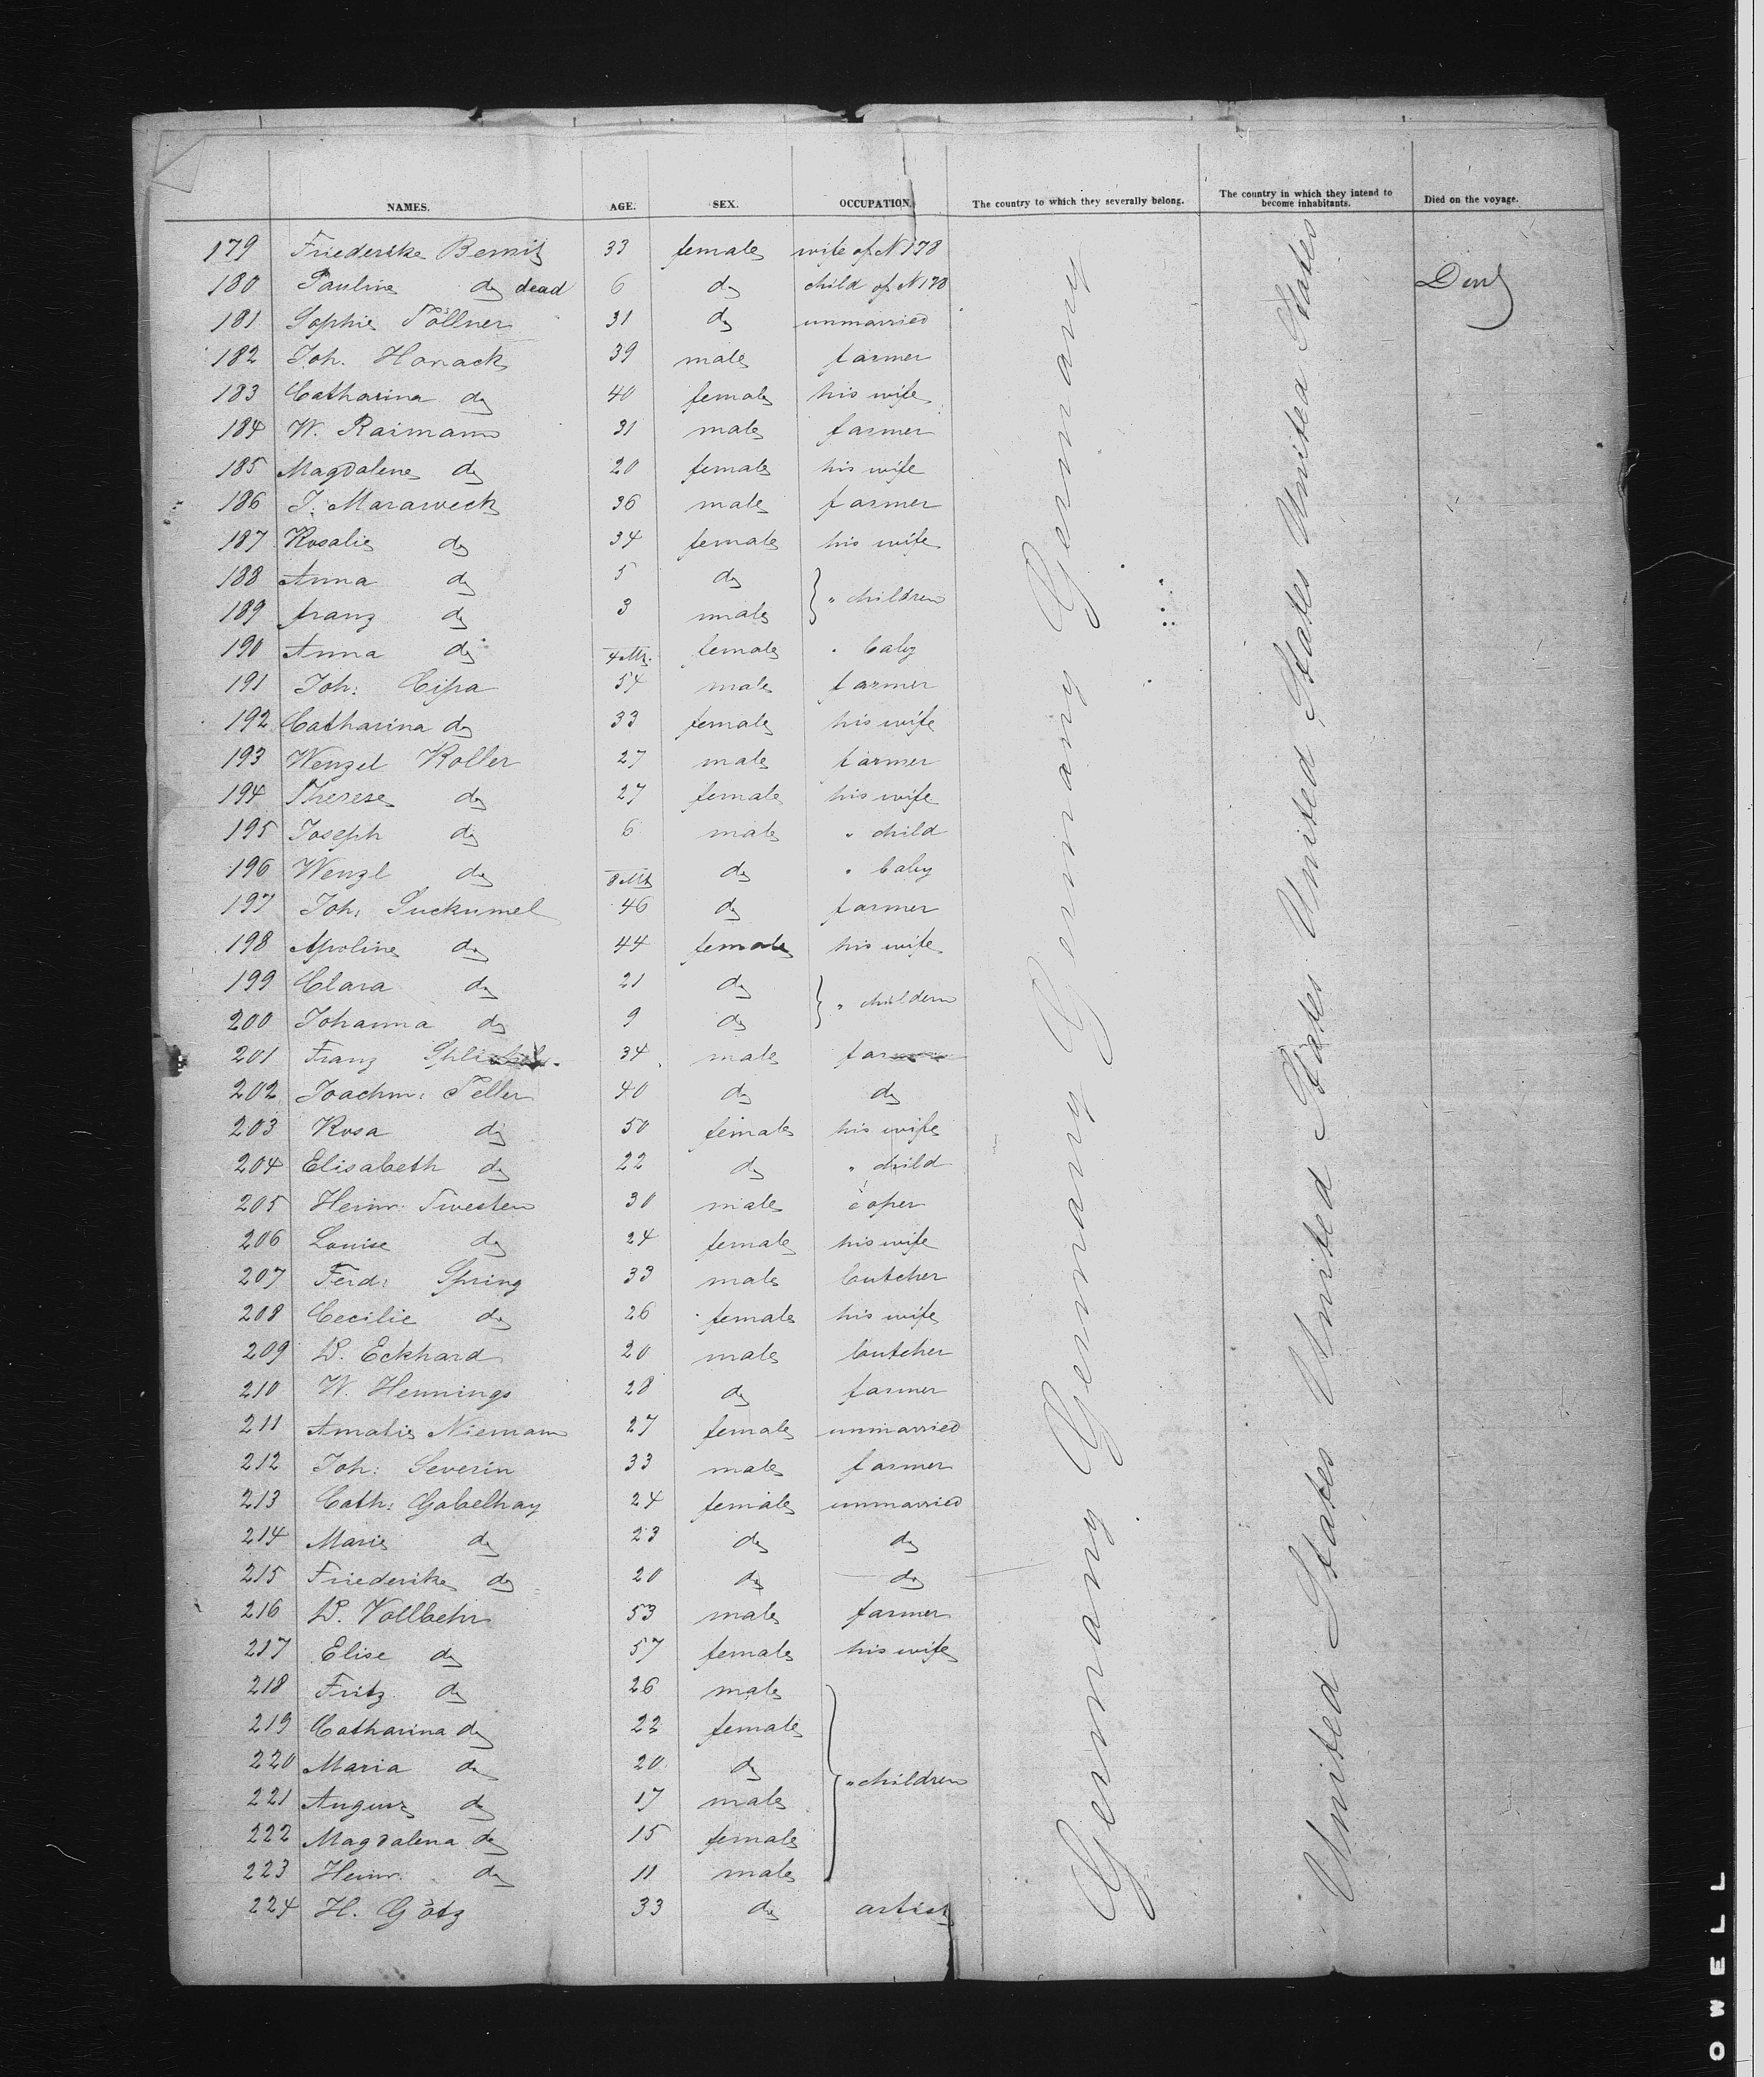 NAMES. AGE. SEX. OCCUPATION. The country to which they severally belong. The country in which they intend to become inhabitants. Died on the voyage.
179 Friederike 33 female wife of N 178
180 Pauline do dead 6 do child of N 178
181 Sophie Töllner 31 do unmarried
182 Joh. Horack 39 male farmer
183 Catharina do 40 female his wife
184 W. Raimann 31 male farmer
185 Magdalene do 20 female his wife
186 J. Maraweck 36 male farmer
187 Rosalie do 34 female his wife
188 Anna do 5 do
" children
189 franz do 3 male
190 Anna do 4 Mt. female " baby
191 Joh: Cipa 54 male farmer
192 Catharina do 33 female his wife
193 Wenzel Koller 27 male farmer
194 Therese do 27 female his wife
195 Joseph do 6 male " child
196 Wenzl do 8 Mt do " baby
197 Joh: Suckumel 46 do farmer
198 Apoline do 44 female his wife
199 Clara do 21 do
" children
200 Johanna do 9 do
201 Franz 34 male
202 Joachm: Teller 40 do do
203 Rosa do 50 female his wife
204 Elisabeth do 22 do " child
205 Heinr: Twesten 30 male coper
206 Louise do 24 female his wife
207 Ferd: Spring 33 male butcher
208 Cecilie do 26 female his wife
209 D. Eckhard 20 male butcher
210 W. Hennings 28 do farmer
211 Amalie Niemann 27 female unmarried
212 Joh: Severin 33 male farmer
213 Cath: Gabelhay 24 female unmarried
214 Marie do 23 do do
215 Friederike do 20 do do
216 D. Vollbehr 53 male farmer
217 Elise do 57 female his wife
218 Fritz do 26 male
219 Catharina do 22 female
220 Maria do 20 do
" children
221 August do 17 male
222 Magdalena do 15 female
223 Heinr: do 11 male
224 H. Götz 33 do artist
Germany Germany Germany Germany Germany
United States United States United States United States United States
OWELL